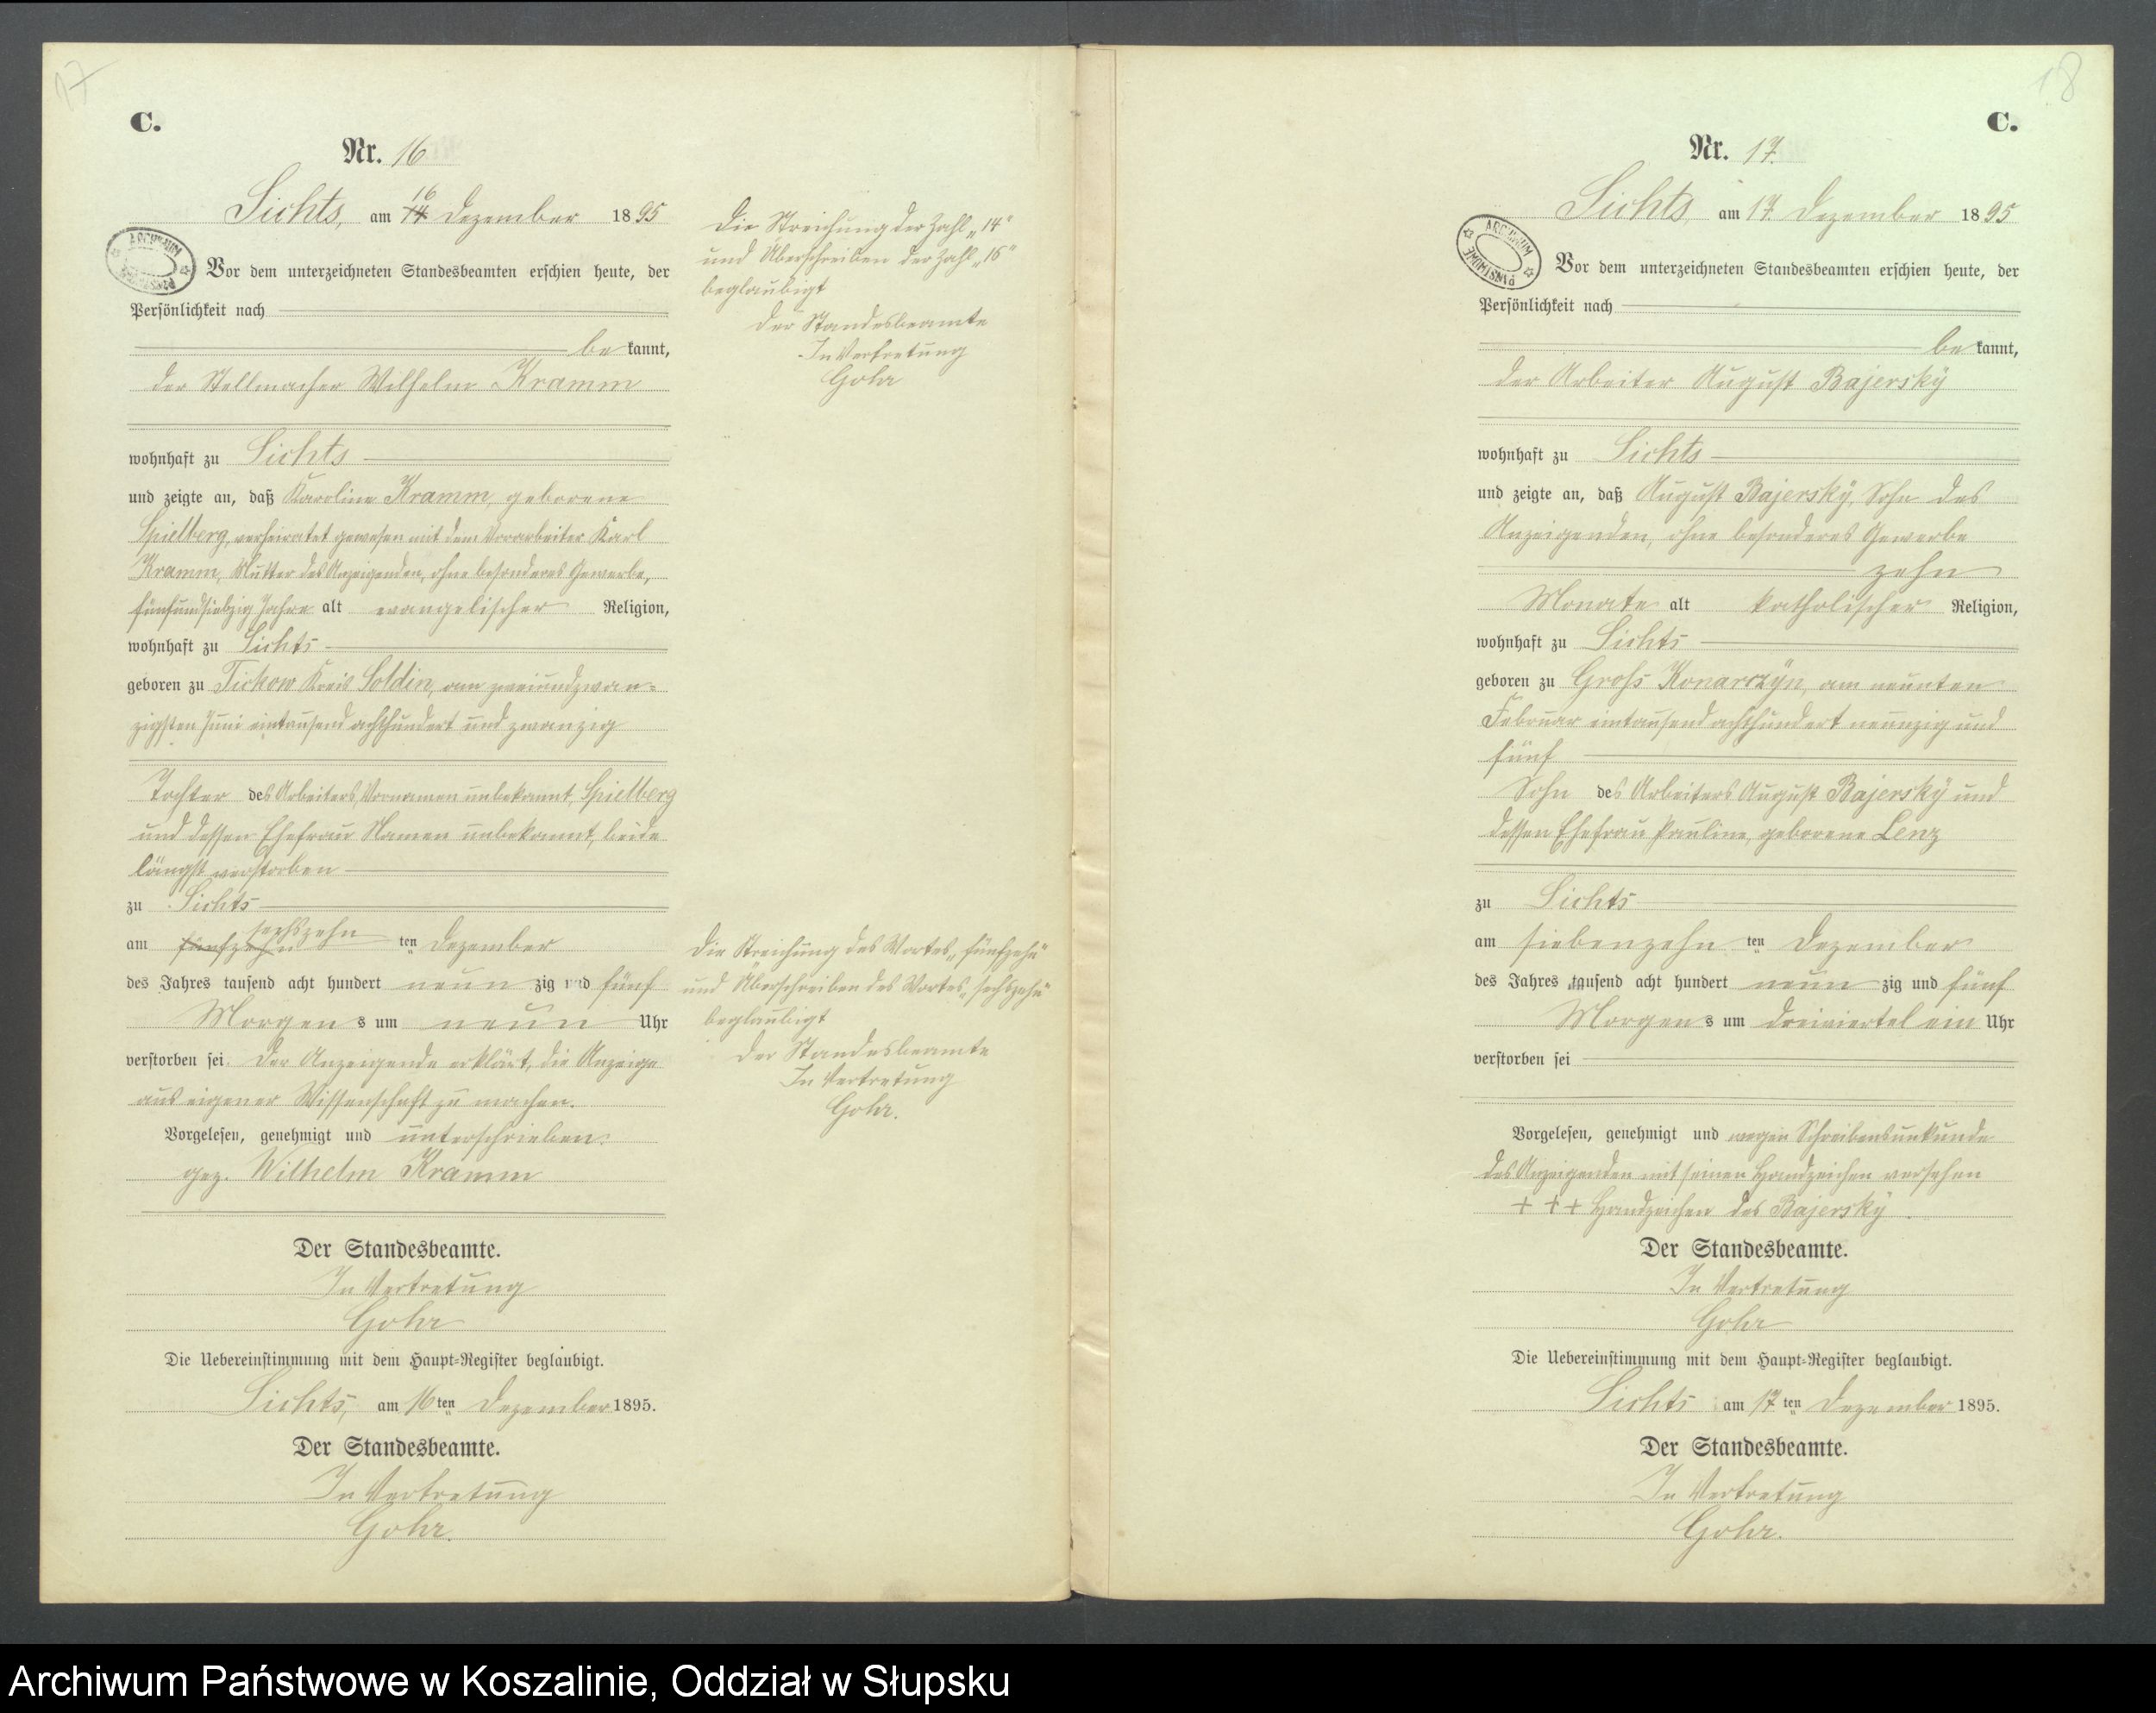 17
C.
Nr. 16
Sichts, am 14 16 Dezember 1895
Vor dem unterzeichneten Standesbeamten erschien heute, der
Persönlichkeit nach
bekannt,
der Stellmacher Wilhelm Kramm
wohnhaft zu Sichts
und zeigte an, daß Karoline Kramm, geborene
Spielberg, verheiratet gewesen mit dem Vorarbeiter Karl
Kramm, Mutter des Anzeigenden, ohne besonderes Gewerbe,
fünfundsiebzig Jahre alt evangelischer Religion,
wohnhaft zu Sichts
geboren zu Tickow Kreis Soldin, am zweiundzwan-
zigsten Juni eintausend achthundert und zwanzig
Tochter des Arbeiters, Vornamen unbekannt, Spielberg
und dessen Ehefrau Namen unbekannt, beide
längst verstorben
zu Sichts
am fünfzehn sechszehn ten Dezember
des Jahres tausend acht hundert neunzig und fünf
Morgens um neun Uhr
verstorben sei. Der Anzeigende erklärt, die Anzeige
aus eigener Wissenschaft zu machen.
Vorgelesen, genehmigt und unterschrieben.
gez. Wilhelm Kramm
Der Standesbeamte.
In Vertretung
Gohr
Die Uebereinstimmung mit dem Haupt-Register beglaubigt.
Sichts, am 16ten Dezember 1895.
Der Standesbeamte.
In Vertretung
Gohr.
Die Streichung der Zahl „14"
und Überschreiben der Zahl „16"
beglaubigt
Der Standesbeamte
In Vertretung
Gohr
Die Streichung des Wortes „fünfzehn"
und Überschreiben des Wortes „sechszehn"
beglaubigt
Der Standesbeamte
In Vertretung
Gohr.
18
C.
Nr. 17.
Sichts, am 17. Dezember 1895
Vor dem unterzeichneten Standesbeamten erschien heute, der
Persönlichkeit nach
bekannt,
der Arbeiter August Bajerský
wohnhaft zu Sichts
und zeigte an, daß August Bajerský, Sohn des
Anzeigenden, ohne besonderes Gewerbe
zehn
Monate alt katholischer Religion,
wohnhaft zu Sichts
geboren zu Groß Konarczyn, am neunten
Februar eintausend achthundert neunzig und
fünf
Sohn des Arbeiters August Bajerský und
dessen Ehefrau Pauline, geborene Lenz
zu Sichts
am siebenzehn ten Dezember
des Jahres tausend acht hundert neunzig und fünf
Morgens um dreiviertel ein Uhr
verstorben sei
Vorgelesen, genehmigt und wegen Schreibensunkunde
des Anzeigenden mit seinen Handzeichen versehen
+ + + Handzeichen des Bajerský.
Der Standesbeamte.
In Vertretung
Gohr
Die Uebereinstimmung mit dem Haupt-Register beglaubigt.
Sichts am 17ten Dezember 1895.
Der Standesbeamte.
In Vertretung
Gohr.
Archiwum Państwowe w Koszalinie, Oddział w Słupsku